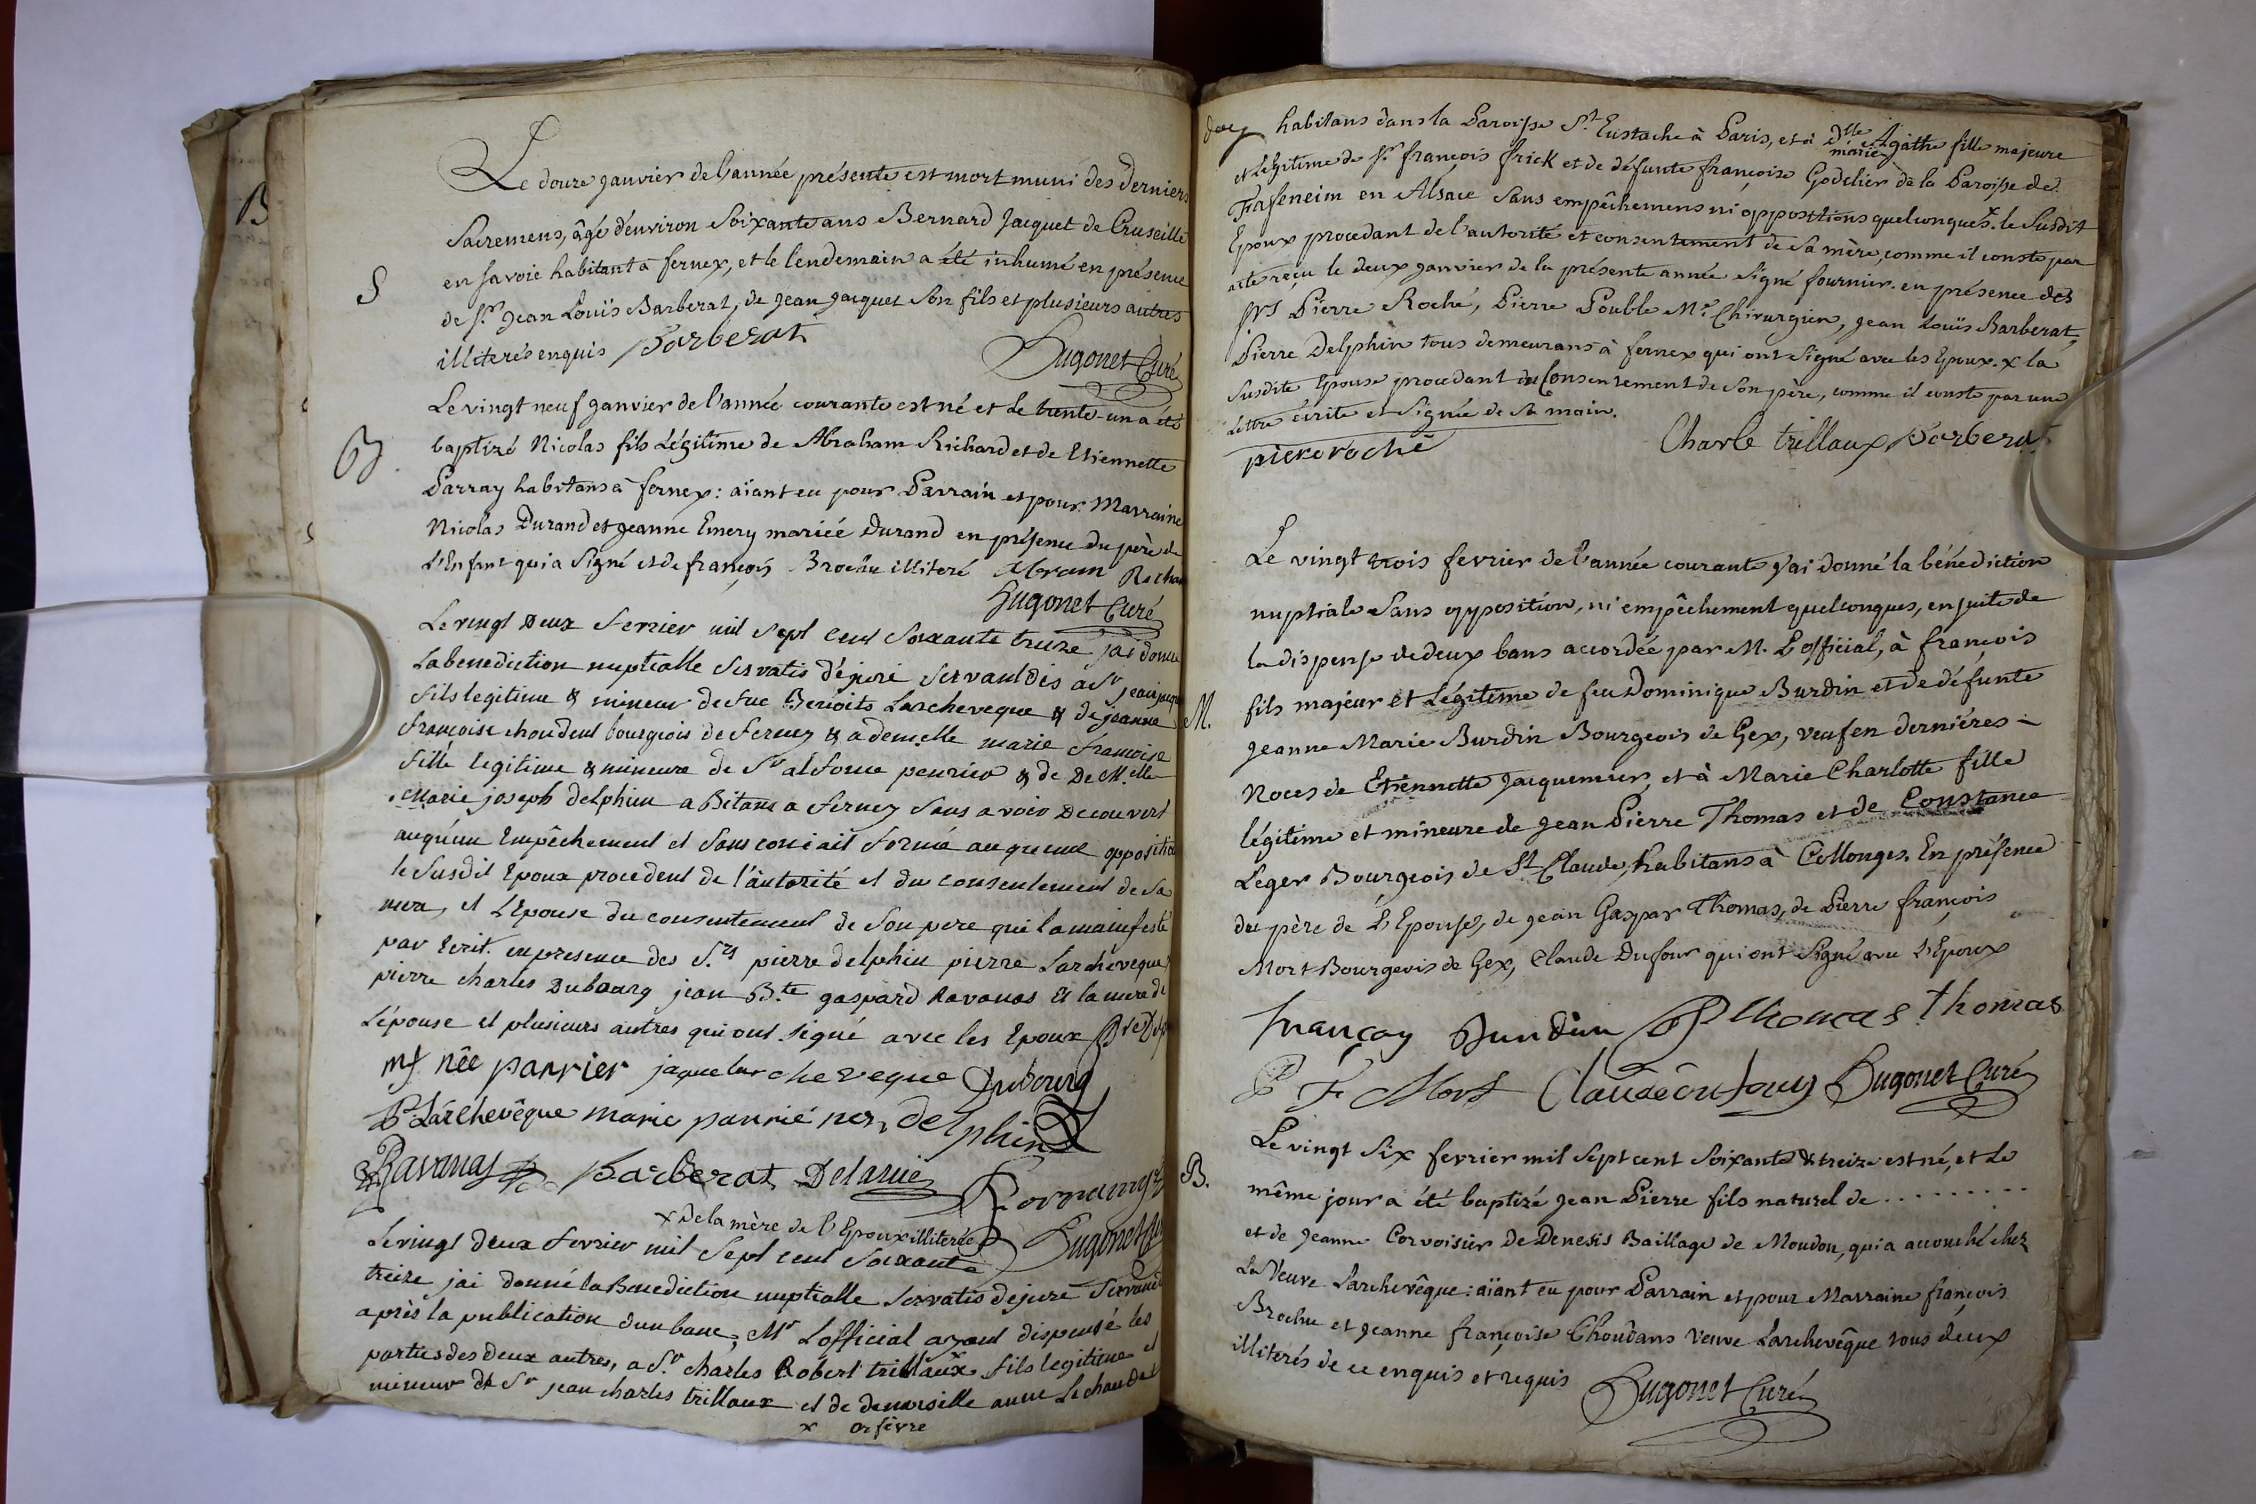 B
Le douze janvier de l'année présente est mort muni des derniers
Sacremens, âgé d'environ Soixante ans Bernard Jacquet de Cruseille
S
en Savoie habitant à fernex, et le lendemain a été inhumé en présence
de Sr. Jean Louis Barberat, de Jean Jacquet Son fils et plusieurs autres
illiterés enquis Barberat
Hugonet Curé
Le vingt neuf janvier de l'année courante est né et le trente-un a été
B.
baptizé Nicolas fils Légitime de Abraham Richard et de Etiennette
Parray habitans à fernex: aïant eu pour Parrain et pour Marraine
Nicolas Durand et Jeanne Emery mariée Durand en présence du père de
L'Enfant qui a Signé et de françois Brochu illiteré Abram Richar
Hugonet Curé
Le vingt Deux fevrier mil sept cent soixante treize jai donné
La benediction nuptialle servatis déjuré servandis a Sr jean jacque
fils legitime & mineur de feu Benoits Larcheveque & de jeanne
françoise choudens bourgois de ferney & a demelle marie francoise
fille legitime & mineure de Sr alfonce penrier & de De Melle
Marie joseph delphin abitans a ferney sans avoir decouvert
auquun Empêchement et sans con'ait formé auqu'une opposition
le susdit Epoux procedent de l'autorité et du consentement de sa
mere, et l'Epouse du consentement de son pere qui la manifesté
par Ecrit. en presence des S.rs pierre delphin pierre Larcheveque
pierre charles Dubourg jean B.te gaspard Ravanas et la mere de
L'épouse et plusieurs autres qui ont signé avec les Epoux
mf née panrier jaque larcheveque Dubourg
P. Lárchevêque marie panrié ner delphin
Ravanas Barberat Delarue
x de la mère de l'Epoux illiterée
Hugonet Curé
Le vingt deux fevrier mil sept cent soixante
treize jai donné la Benediction nuptialle servatis dejuré servandis
après la publication d'un banc, Mr Lofficial ayant dispensé les
parties des deux autres, a Sr charles Robert trillaux x fils legitime et
mineur de Sr jean charles trillaux et de demoiselle anne Lechaudet
x orfèvre
habitans dans la Paroisse St Eustache à Paris, et à Dlle marie Agathe fille majeure
et Légitime de Sr françois frick et de défunte françoise Godelier de la Paroisse de
Trafeneim en Alsace Sans empêchemens ni oppositions quelconques. x le Susdit
Epoux procedant de l'autorité et consentement de Sa mère, comme il conste par
acte reçu le deux janvier de la présente année Signé fournier. en présence des
Srs Pierre Roché, Pierre Pouble Me. Chirurgien, Jean Louis Barberat,
Pierre Delphin tous demeurans à fernex qui ont Signé avec les Epoux. x la
Susdite Epouse procedant du Consentement de Son père, comme il conste par une
Lettre écrite et Signée de Sa main.
piere roché
Charle trillaux Barberat
Le vingt trois fevrier de l'année courante j'ai donné la bénédiction
nuptiale Sans opposition, ni empêchement quelconques, ensuite de
la dispense de deux bans accordée par M. L'official, à françois
M.
fils majeur et Légitime de feu Dominique Burdin et de défunte
Jeanne Marie Burdin Bourgeois de Gex, veuf en derniéres
Noces de Etiennette Jacquemier, et à Marie Charlotte fille
légitime et mineure de Jean Pierre Thomas et de Constance
Leger Bourgeois de St Claude, habitans à Collonges. En présence
du père de L'Epouse, de Jean Gaspar Thomas, de Pierre françois
Mort Bourgeois de Gex, Claude Dufour qui ont Signé avec L'Epoux
françoy Burdin JP Thomas Thomas
P F Mort Claude dufour Hugonet Curé
Le vingt Six fevrier mil Sept cent Soixante & treize est né, et le
B.
même jour a été baptizé Jean Pierre fils naturel de .........
et de Jeanne Corvoisier de Denesis Baillage de Moudon, qui a accouché chez
La Veuve Larchevêque: aïant eu pour Parrain et pour Marraine françois
Brochu et Jeanne françoise Choudans Veuve Larchevêque tous deux
illiterés de ce enquis et requis
Hugonet Curé